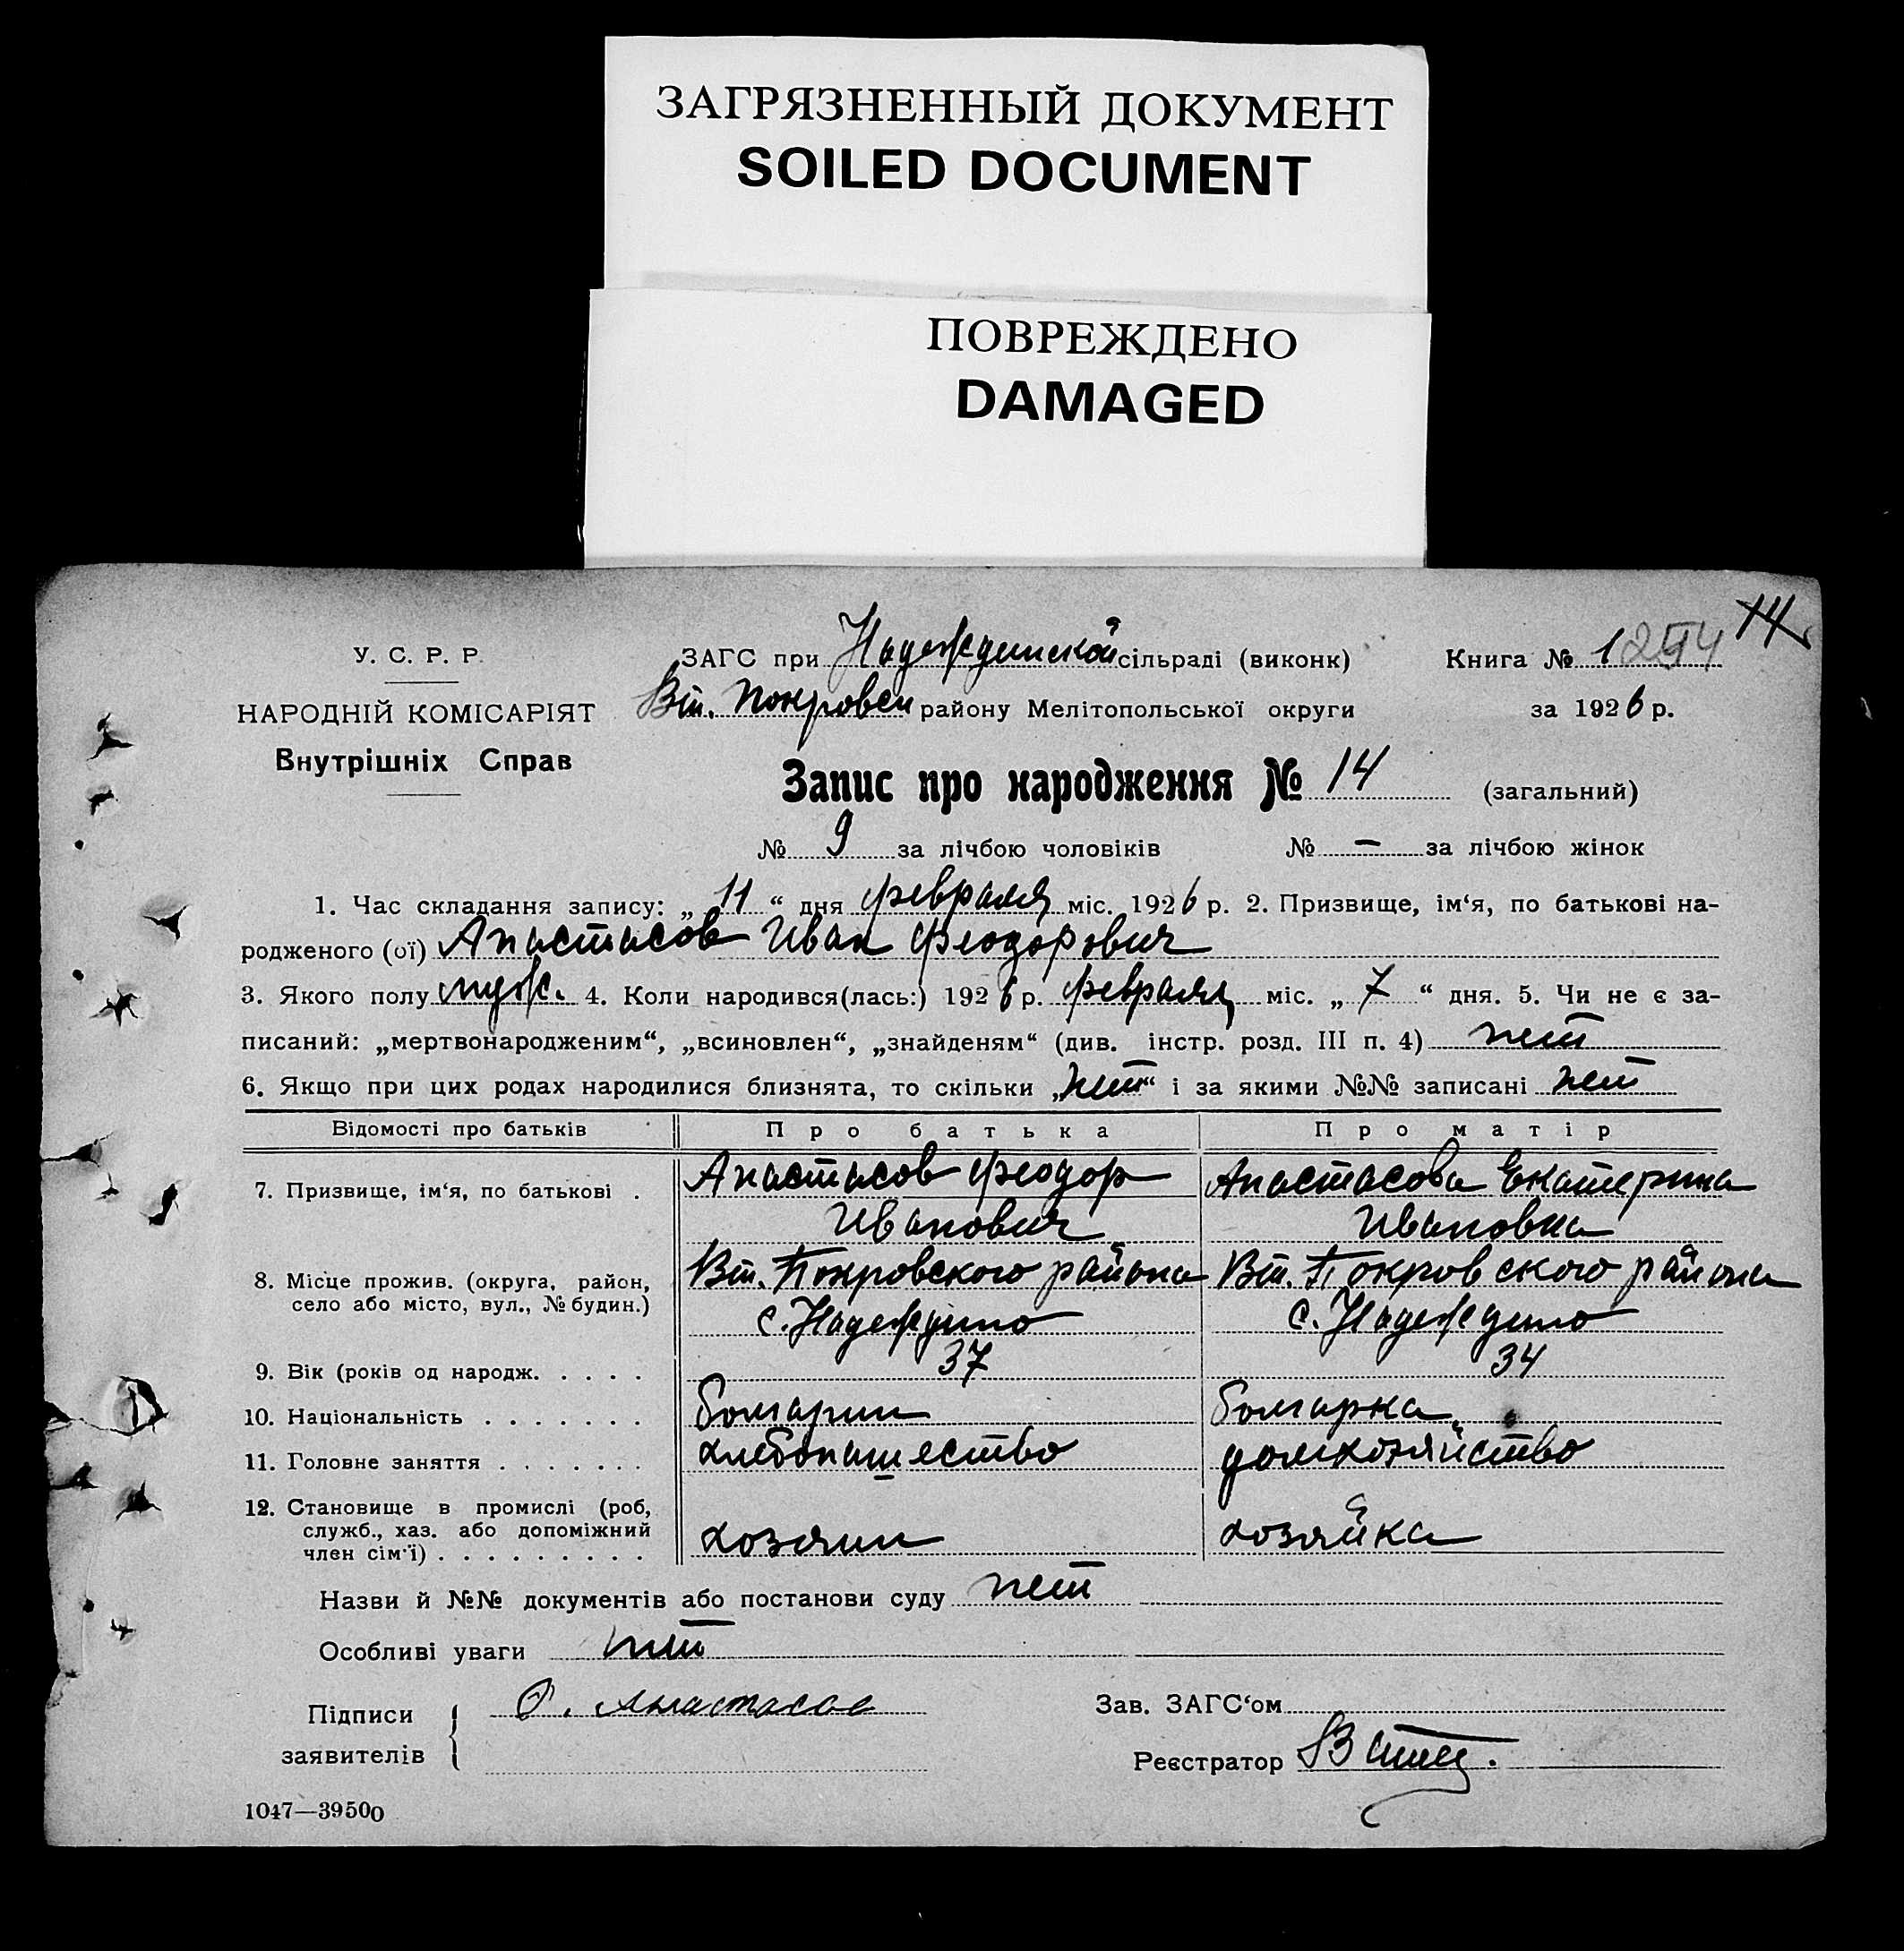 ЗАГРЯЗНЕННЫЙ ДОКУМЕНТ
SOILED DOCUMENT
ПОВРЕЖДЕНО
DAMAGED
14
У. С. Р. Р.
НАРОДНІЙ КОМІСАРІЯТ
Внутрішніх Справ
ЗАГС при Надеждинской сільраді (виконк) Книга № 1
Вт. Покровск району Мелітопольської округи за 1926 р.
Запис про народження № 14 (загальний)
№ 9 за лічбою чоловіків № — за лічбою жінок
1. Час складання запису: „11“ дня февраля міс. 1926 р. 2. Призвище, ім‘я, по батькові на-
родженого (ої) Анастасов Иван Феодорович
3. Якого полу муж. 4. Коли народився(лась:) 1926 р. февраля міс. „7“ дня. 5. Чи не є за-
писаний: „мертвонародженим“, „всиновлен“, „знайденям“ (див. інстр. розд. III п. 4) нет
6. Якщо при цих родах народилися близнята, то скільки „нет“ і за якими №№ записані нет
Відомості про батьків Про батька Про матір
7. Призвище, ім‘я, по батькові . Анастасов Феодор Анастасова Екатерина
Иванович Ивановна
8. Місце прожив. (округа, район, Вт. Покровского района Вт. Покровского района
село або місто, вул., № будин.) с. Надеждино с. Надеждино
9. Вік (років од народж. . . . . 37 34
10. Національність . . . . . . . болгарин болгарка
11. Головне заняття . . . . . . . хлебопашество домхозяйство
12. Становище в промислі (роб,
служб., хаз. або допоміжний
член сім‘ї) . . . . . . . . . хозяин хозяйка
Назви й №№ документів або постанови суду нет
Особливі уваги нет
Підписи
заявителів
Ф. Анастасов
Зав. ЗАГС‘ом
Реєстратор
1047—39500